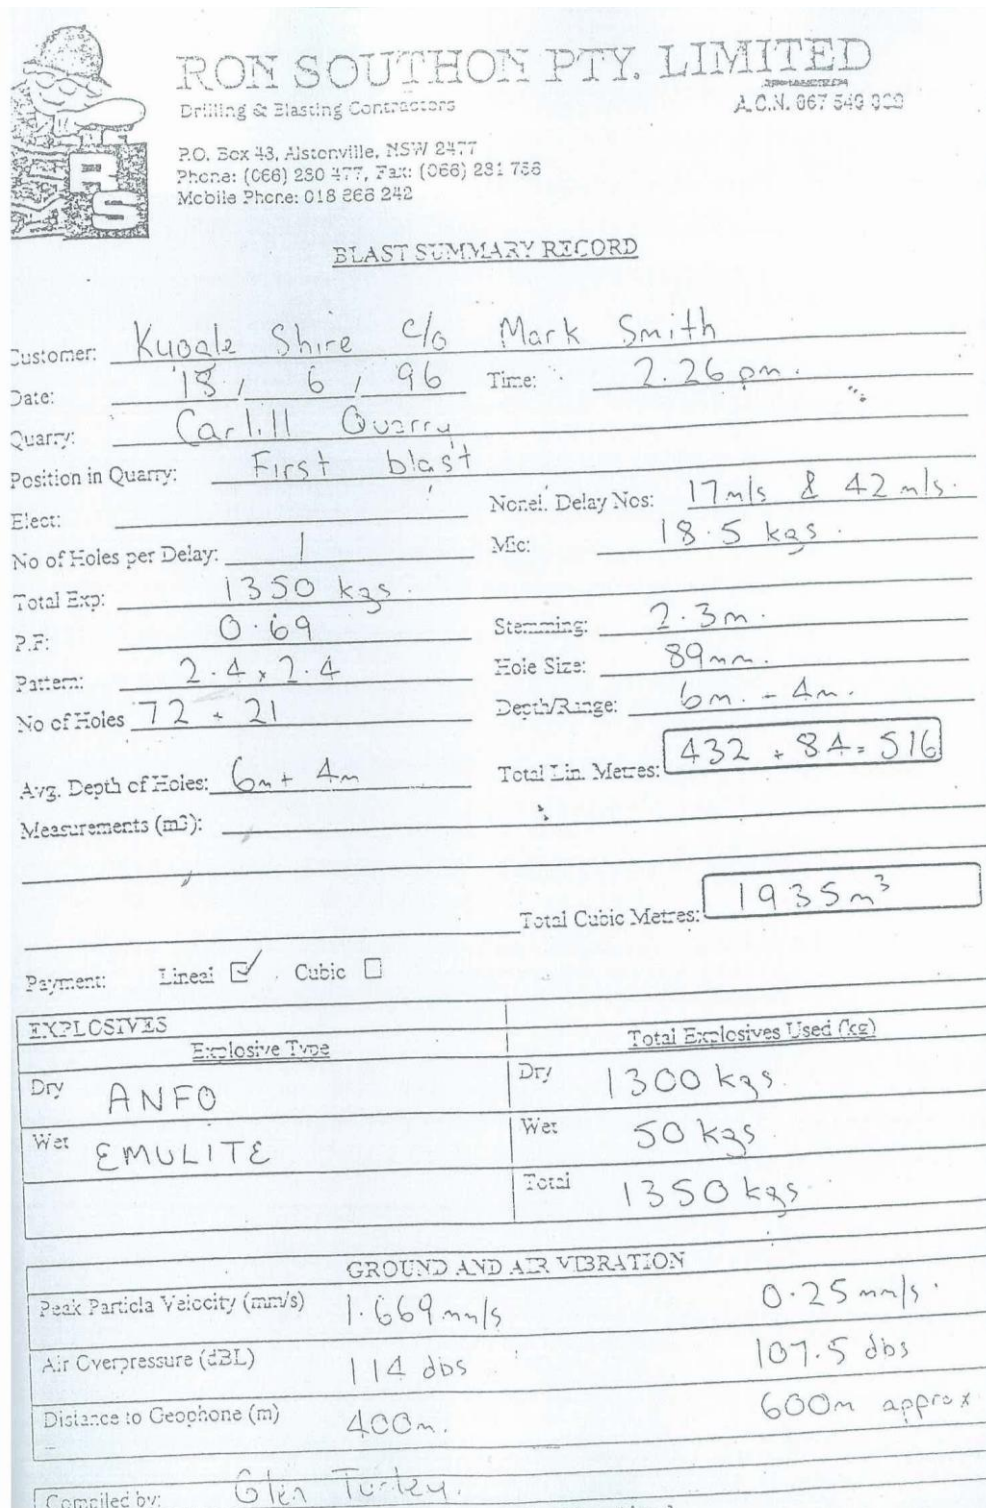 RON SOUTHON PTY. LIMITED
Drilling & Blasting Contractors
A.C.N. 067 549
P.O. Box 43, Alstonville, NSW 2477
Phone: (066) 280 477, Fax: (066) 281 786
Mobile Phone: 018 266 242
RS
BLAST SUMMARY RECORD
Customer: Kyogle Shire c/o Mark Smith
Date: 18 / 6 / 96 Time: 2.26 pm.
Quarry: Carlill Quarry
Position in Quarry: First blast
Elect: Nonel. Delay Nos: 17 m/s & 42 m/s.
No of Holes per Delay: 1 Mic: 18.5 kgs.
Total Exp: 1350 kgs.
P.F: 0.69 Stemming: 2.3m.
Pattern: 2.4 x 2.4 Hole Size: 89mm.
No of Holes 72 + 21 Depth/Range: 6m. - 4m.
Avg. Depth of Holes: 6m + 4m Total Lin. Metres: 432 + 84 = 516
Measurements (m3):
Total Cubic Metres: 1935 m³
Payment: Lineal ☑ Cubic ☐
EXPLOSIVES
Explosive Type Total Explosives Used (kg)
Dry ANFO Dry 1300 kgs.
Wet EMULITE Wet 50 kgs.
Total 1350 kgs.
GROUND AND AIR VIBRATION
Peak Particla Velocity (mm/s) 1.669 mm/s 0.25 mm/s.
Air Overpressure (dBL) 114 dbs 107.5 dbs
Distance to Geophone (m) 400m. 600m approx
Compiled by: Glen Turley.